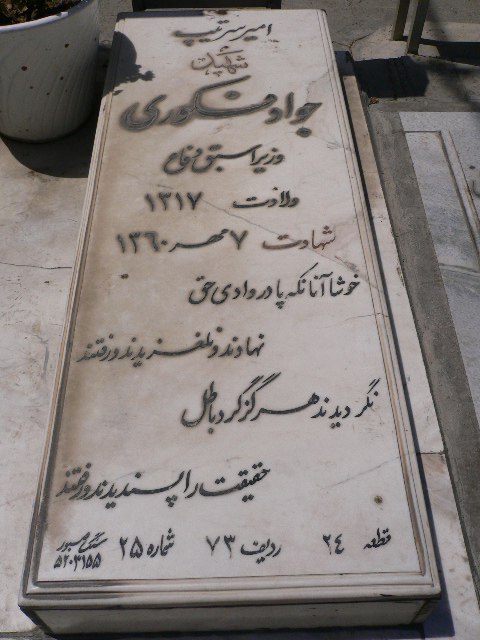 امیر سرتیپ
شهید
جواد فکوری
وزیر اسبق دفاع
ولادت ۱۳۱۷
شهادت ۷ مهر ۱۳۶۰
خوشا آنانکه پا در وادی حق
نهادند و نلغزیدند و رفتند
نگردیدند هرگز گرد باطل
حقیقت را پسندیدند و رفتند
قطعه ۲۴ ردیف ۷۳ شماره ۲۵
۵۲۰۳۱۵۵